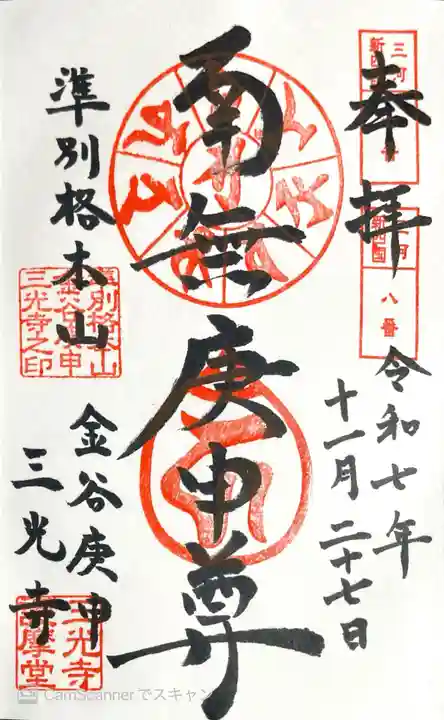 奉拝
三河
新四国
三河
新四国
八番
令和七年
十一月二十七日
南無庚申尊
準別格本山
金谷庚申
三光寺
準別格本山
金谷庚申
三光寺之印
三光寺
護摩堂
CamScannerでスキャン